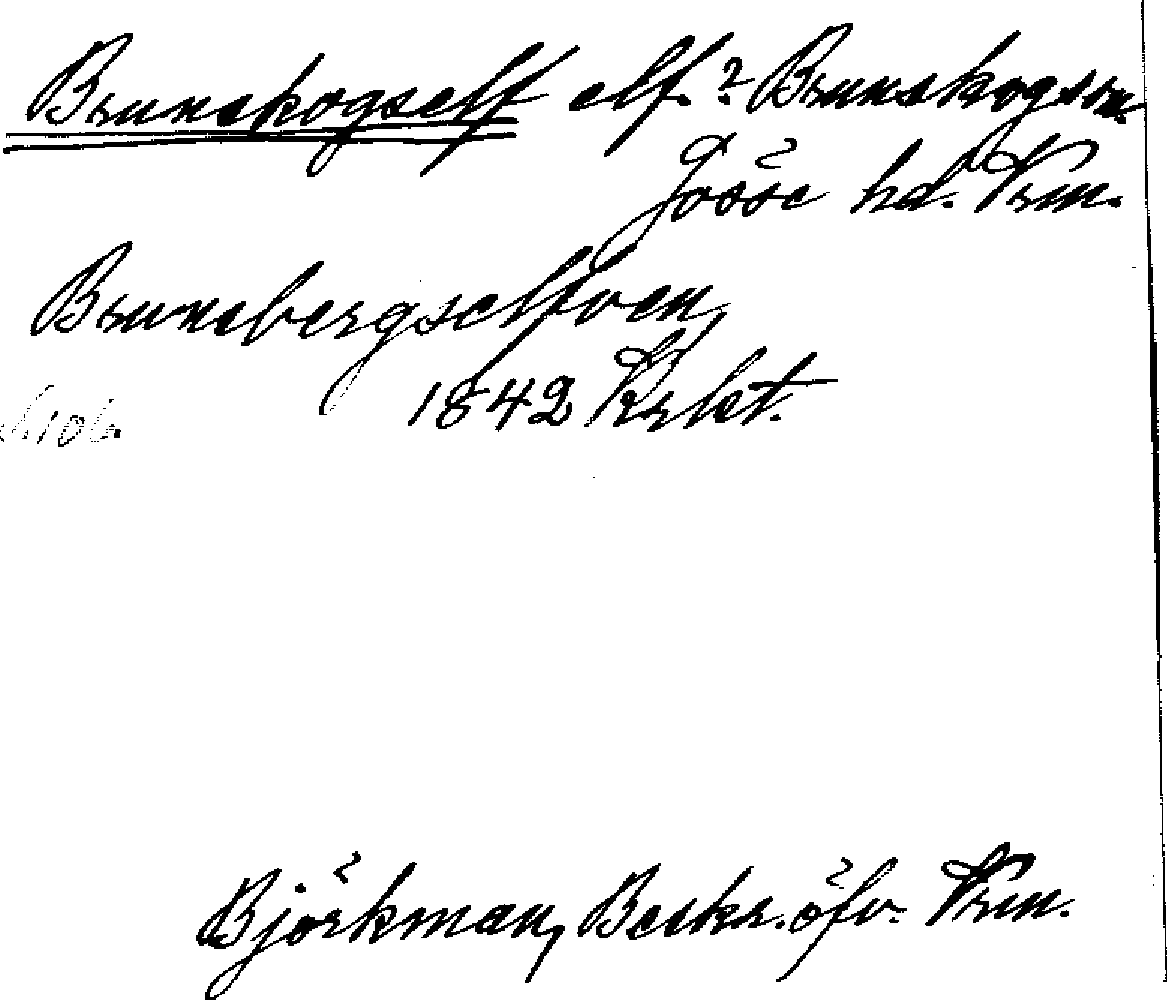 Brunskogself elf.? Brunskog sn.
Jösse hd. Vrm.
Brunsbergselfven
1842 Krkt.
Björkman, Beskr. öfv. Vrm.